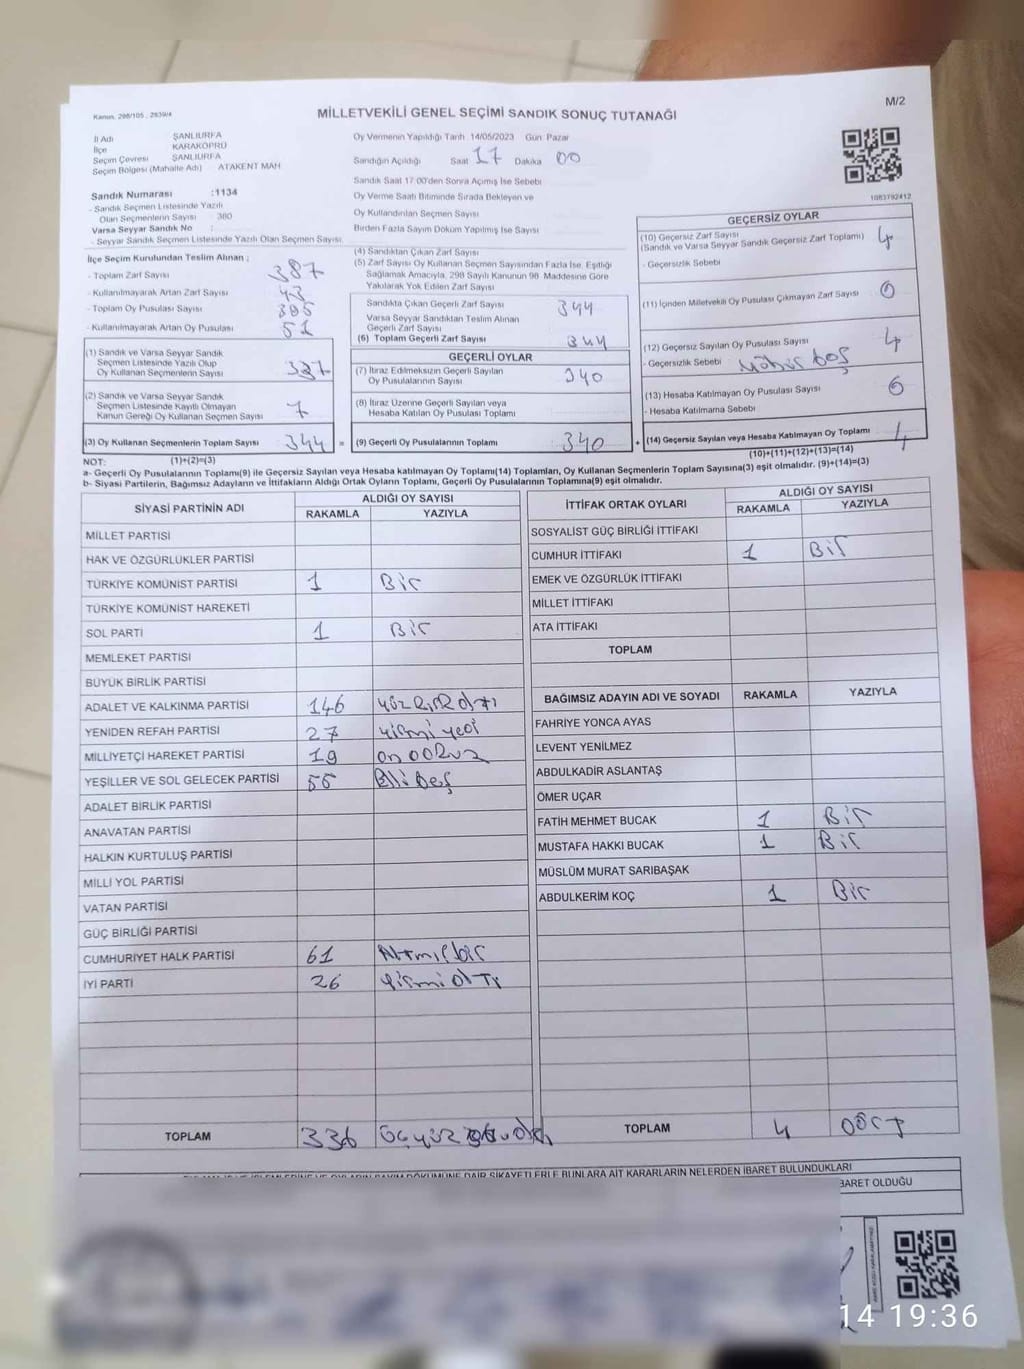 Kanun. 298/105 , 2839/4
MİLLETVEKİLİ GENEL SEÇİMİ SANDIK SONUÇ TUTANAĞI
M/2
İl Adı ŞANLIURFA
İlçe KARAKÖPRÜ
Seçim Çevresi ŞANLIURFA
Seçim Bölgesi (Mahalle Adı) ATAKENT MAH
Sandık Numarası :1134
- Sandık Seçmen Listesinde Yazılı
Olan Seçmenlerin Sayısı : 380
Varsa Seyyar Sandık No :
- Seyyar Sandık Seçmen Listesinde Yazılı Olan Seçmen Sayısı
Oy Vermenin Yapıldığı Tarih 14/05/2023 Gün: Pazar
Sandığın Açıldığı Saat 17 Dakika 00
Sandık Saat 17.00'den Sonra Açılmış İse Sebebi
Oy Verme Saati Bitiminde Sırada Bekleyen ve
Oy Kullandırılan Seçmen Sayısı
Birden Fazla Sayım Döküm Yapılmış İse Sayısı
1083792412
İlçe Seçim Kurulundan Teslim Alınan ;
- Toplam Zarf Sayısı 387
- Kullanılmayarak Artan Zarf Sayısı 43
- Toplam Oy Pusulası Sayısı
- Kullanılmayarak Artan Oy Pusulası 51
(1) Sandık ve Varsa Seyyar Sandık
Seçmen Listesinde Yazılı Olup
Oy Kullanan Seçmenlerin Sayısı 337
(2) Sandık ve Varsa Seyyar Sandık
Seçmen Listesinde Kayıtlı Olmayan
Kanun Gereği Oy Kullanan Seçmen Sayısı 7
(3) Oy Kullanan Seçmenlerin Toplam Sayısı 344 =
(1)+(2)=(3)
(4) Sandıktan Çıkan Zarf Sayısı
(5) Zarf Sayısı Oy Kullanan Seçmen Sayısından Fazla İse, Eşitliği
Sağlamak Amacıyla, 298 Sayılı Kanunun 98. Maddesine Göre
Yakılarak Yok Edilen Zarf Sayısı
Sandıkta Çıkan Geçerli Zarf Sayısı 344
Varsa Seyyar Sandıktan Teslim Alınan
Geçerli Zarf Sayısı
(6) Toplam Geçerli Zarf Sayısı 344
GEÇERLİ OYLAR
(7) İtiraz Edilmeksizin Geçerli Sayılan
Oy Pusulalarının Sayısı 340
(8) İtiraz Üzerine Geçerli Sayılan veya
Hesaba Katılan Oy Pusulası Toplamı
(9) Geçerli Oy Pusulalarının Toplamı 340 +
GEÇERSİZ OYLAR
(10) Geçersiz Zarf Sayısı
(Sandık ve Varsa Seyyar Sandık Geçersiz Zarf Toplamı) 4
- Geçersizlik Sebebi
(11) İçinden Milletvekili Oy Pusulası Çıkmayan Zarf Sayısı 0
(12) Geçersiz Sayılan Oy Pusulası Sayısı 4
- Geçersizlik Sebebi boş
(13) Hesaba Katılmayan Oy Pusulası Sayısı
- Hesaba Katılmama Sebebi
(14) Geçersiz Sayılan veya Hesaba Katılmayan Oy Toplamı 4
(10)+(11)+(12)+(13)=(14)
NOT:
a- Geçerli Oy Pusulalarının Toplamı(9) ile Geçersiz Sayılan veya Hesaba katılmayan Oy Toplamı(14) Toplamları, Oy Kullanan Seçmenlerin Toplam Sayısına(3) eşit olmalıdır. (9)+(14)=(3)
b- Siyasi Partilerin, Bağımsız Adayların ve İttifakların Aldığı Ortak Oyların Toplamı, Geçerli Oy Pusulalarının Toplamına(9) eşit olmalıdır.
SİYASİ PARTİNİN ADI ALDIĞI OY SAYISI
RAKAMLA YAZIYLA
MİLLET PARTİSİ
HAK VE ÖZGÜRLÜKLER PARTİSİ
TÜRKİYE KOMÜNİST PARTİSİ 1 Bir
TÜRKİYE KOMÜNİST HAREKETİ
SOL PARTİ 1 Bir
MEMLEKET PARTİSİ
BÜYÜK BİRLİK PARTİSİ
ADALET VE KALKINMA PARTİSİ 146 yüzkırkaltı
YENİDEN REFAH PARTİSİ 27 yirmi yedi
MİLLİYETÇİ HAREKET PARTİSİ 19 ondokuz
YEŞİLLER VE SOL GELECEK PARTİSİ 55 Elli beş
ADALET BİRLİK PARTİSİ
ANAVATAN PARTİSİ
HALKIN KURTULUŞ PARTİSİ
MİLLİ YOL PARTİSİ
VATAN PARTİSİ
GÜÇ BİRLİĞİ PARTİSİ
CUMHURİYET HALK PARTİSİ 61 Altmışbir
İYİ PARTİ 26 yirmi altı
TOPLAM 336
İTTİFAK ORTAK OYLARI ALDIĞI OY SAYISI
RAKAMLA YAZIYLA
SOSYALİST GÜÇ BİRLİĞİ İTTİFAKI
CUMHUR İTTİFAKI 1 Bir
EMEK VE ÖZGÜRLÜK İTTİFAKI
MİLLET İTTİFAKI
ATA İTTİFAKI
TOPLAM
BAĞIMSIZ ADAYIN ADI VE SOYADI RAKAMLA YAZIYLA
FAHRİYE YONCA AYAS
LEVENT YENİLMEZ
ABDULKADİR ASLANTAŞ
ÖMER UÇAR
FATİH MEHMET BUCAK 1 Bir
MUSTAFA HAKKI BUCAK 1 Bir
MÜSLÜM MURAT SARIBAŞAK
ABDULKERİM KOÇ 1 Bir
TOPLAM 4 Dört
DAİR ŞİKAYETLERLE BUNLARA AİT KARARLARIN NELERDEN İBARET BULUNDUKLARI
BARET OLDUĞU
14 19:36